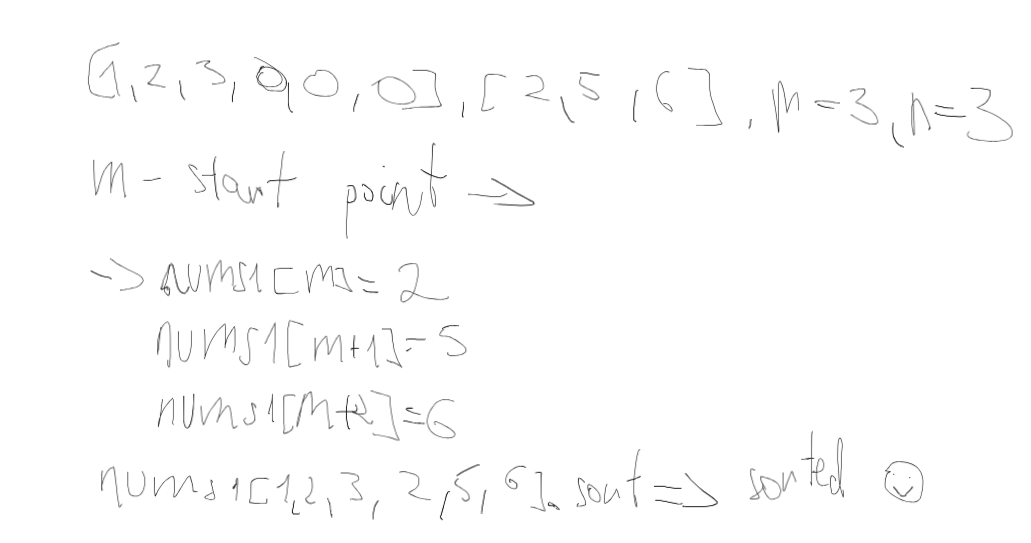 [1,2,3,0,0,0],[2,5,6], m=3,n=3
m - start point →
-> nums1[m]=2
nums1[m+1]=5
nums1[m+2]=6
nums1[1,2,3,2,5,6].sort => sorted